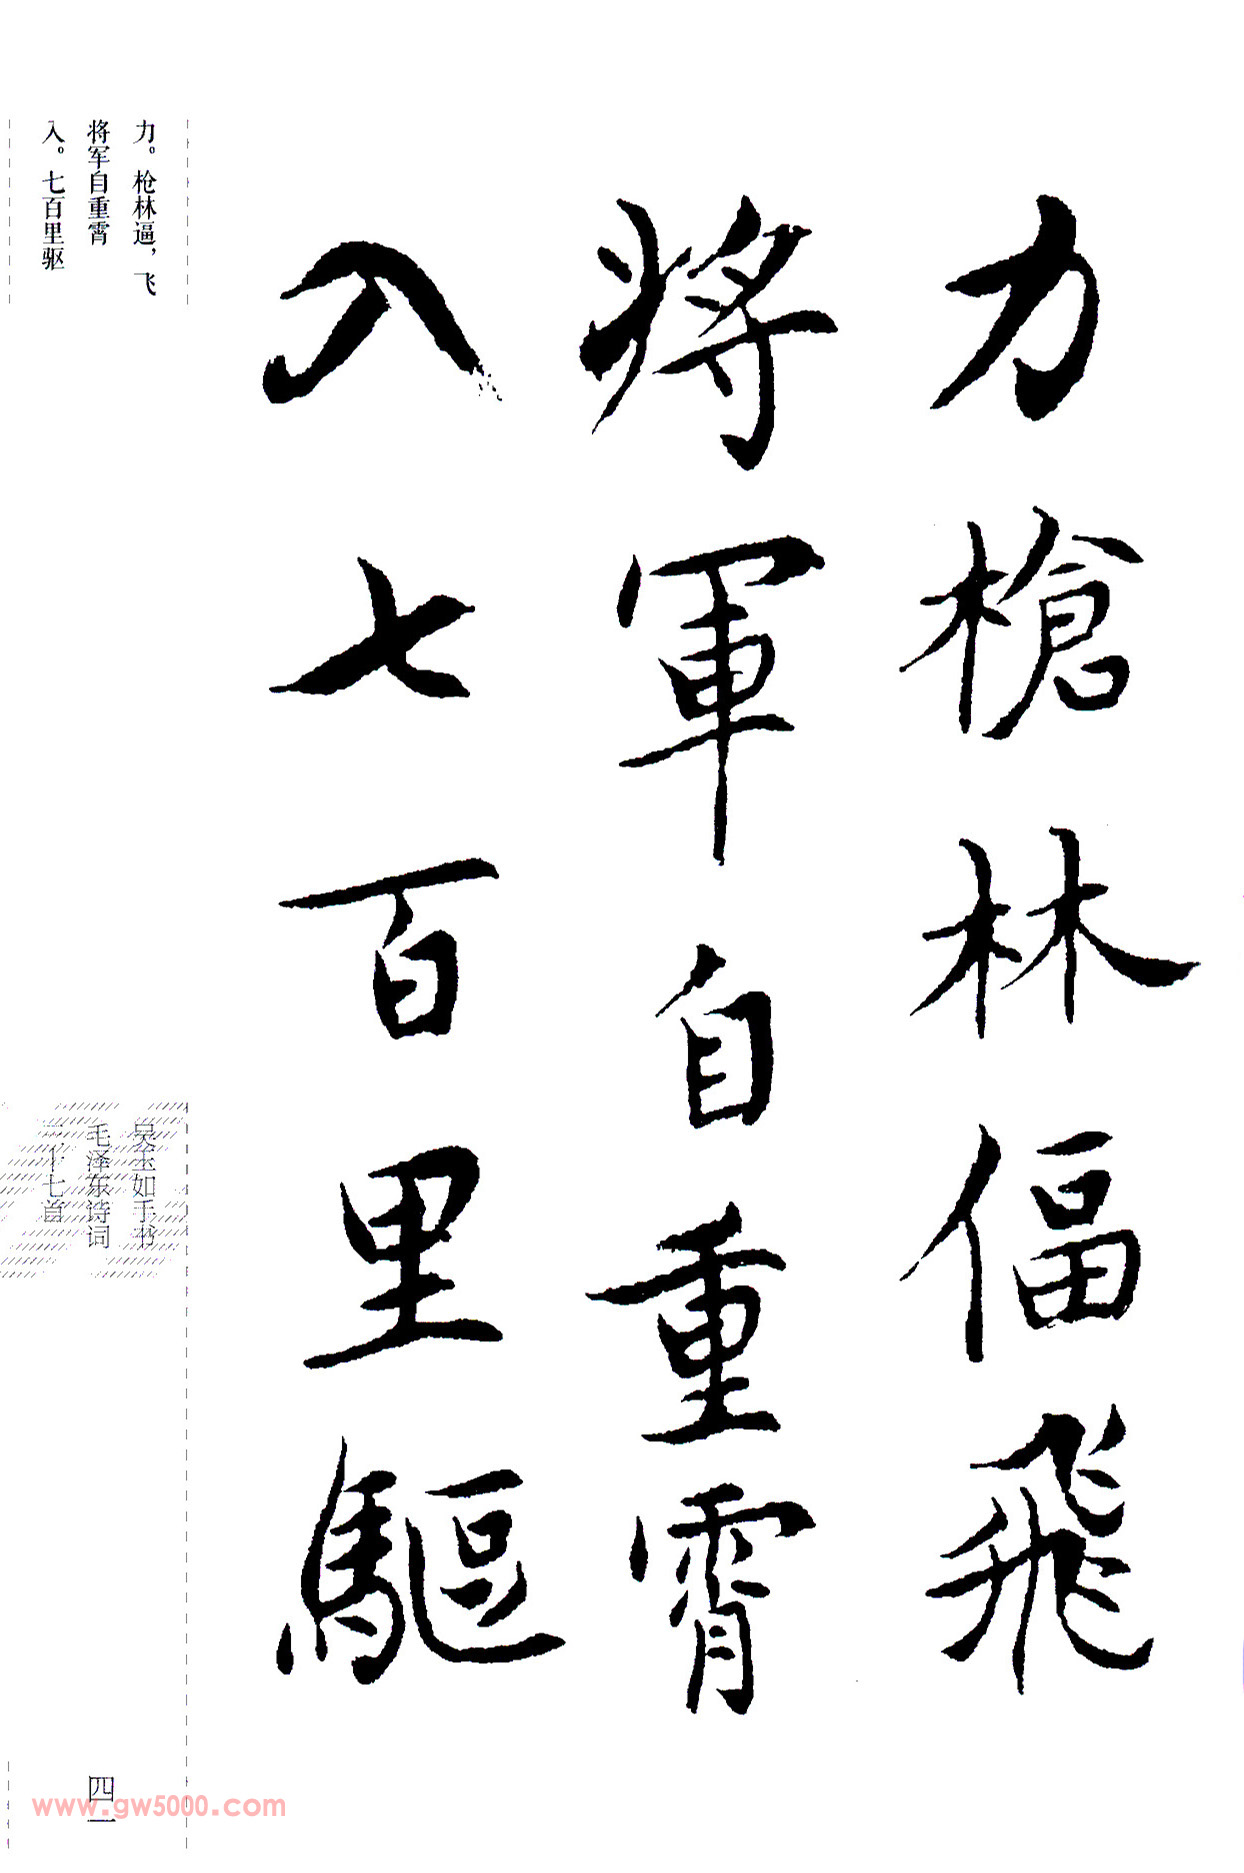 力槍林偪飛
將軍自重霄
入七百里驅
力。枪林逼，飞
将军自重霄
入。七百里驱
吴玉如手书
毛泽东诗词
三十七首
四一
www.gw5000.com